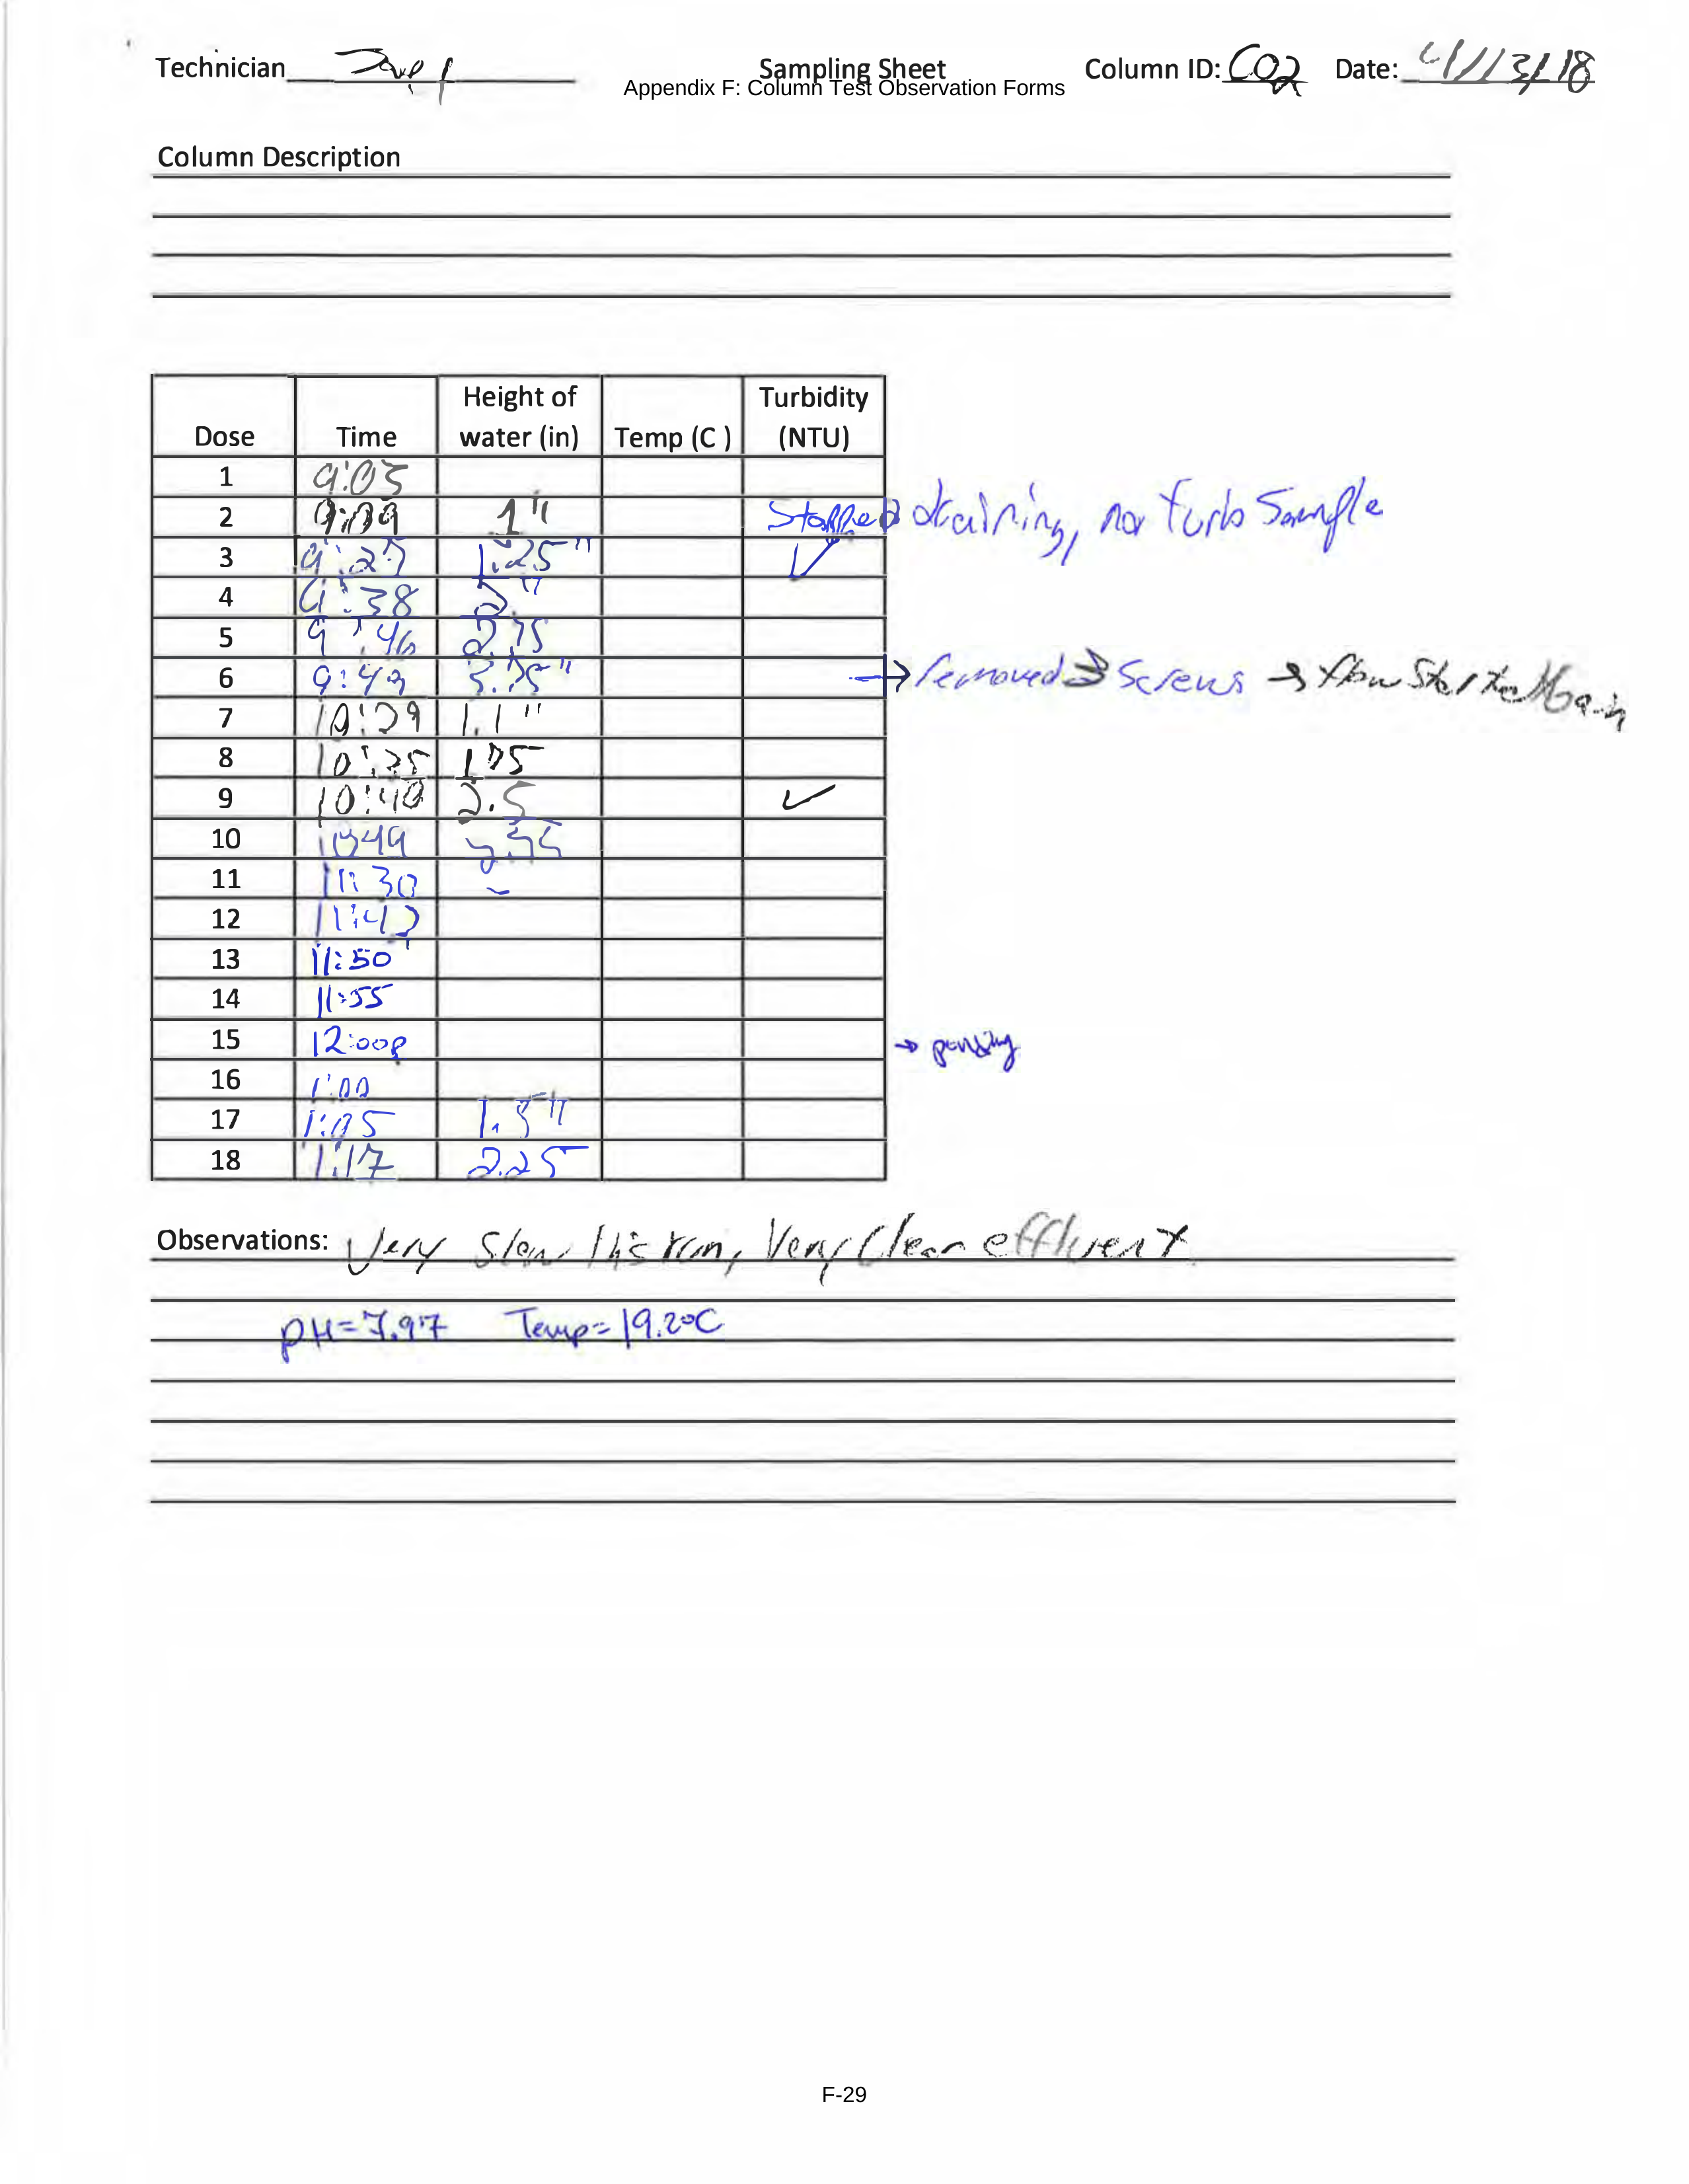 Technician Sampling Sheet Column ID: CO2 Date: 4/13/18
Appendix F: Column Test Observation Forms
Column Description
Dose Time Height of water (in) Temp (C ) Turbidity (NTU)
1 9:05
2 9:09 1" Stopped draining, no turb Sample
3 9:27 1.25" ✓
4 9:38 2"
5 9:46 2.75
6 9:49 3.25" → removed 3 Screws → flow Started Again
7 10:29 1.1"
8 10:35 1.75
9 10:40 2.5 ✓
10 1049
11 11:30 -
12 11:42
13 11:50
14 11:55
15 12:00p →
16 1:00
17 1:05 1.5"
18 1:17 2.25
Observations: Very Slow this run, Very Clear effluent
pH=7.97 Temp=19.2°C
F-29